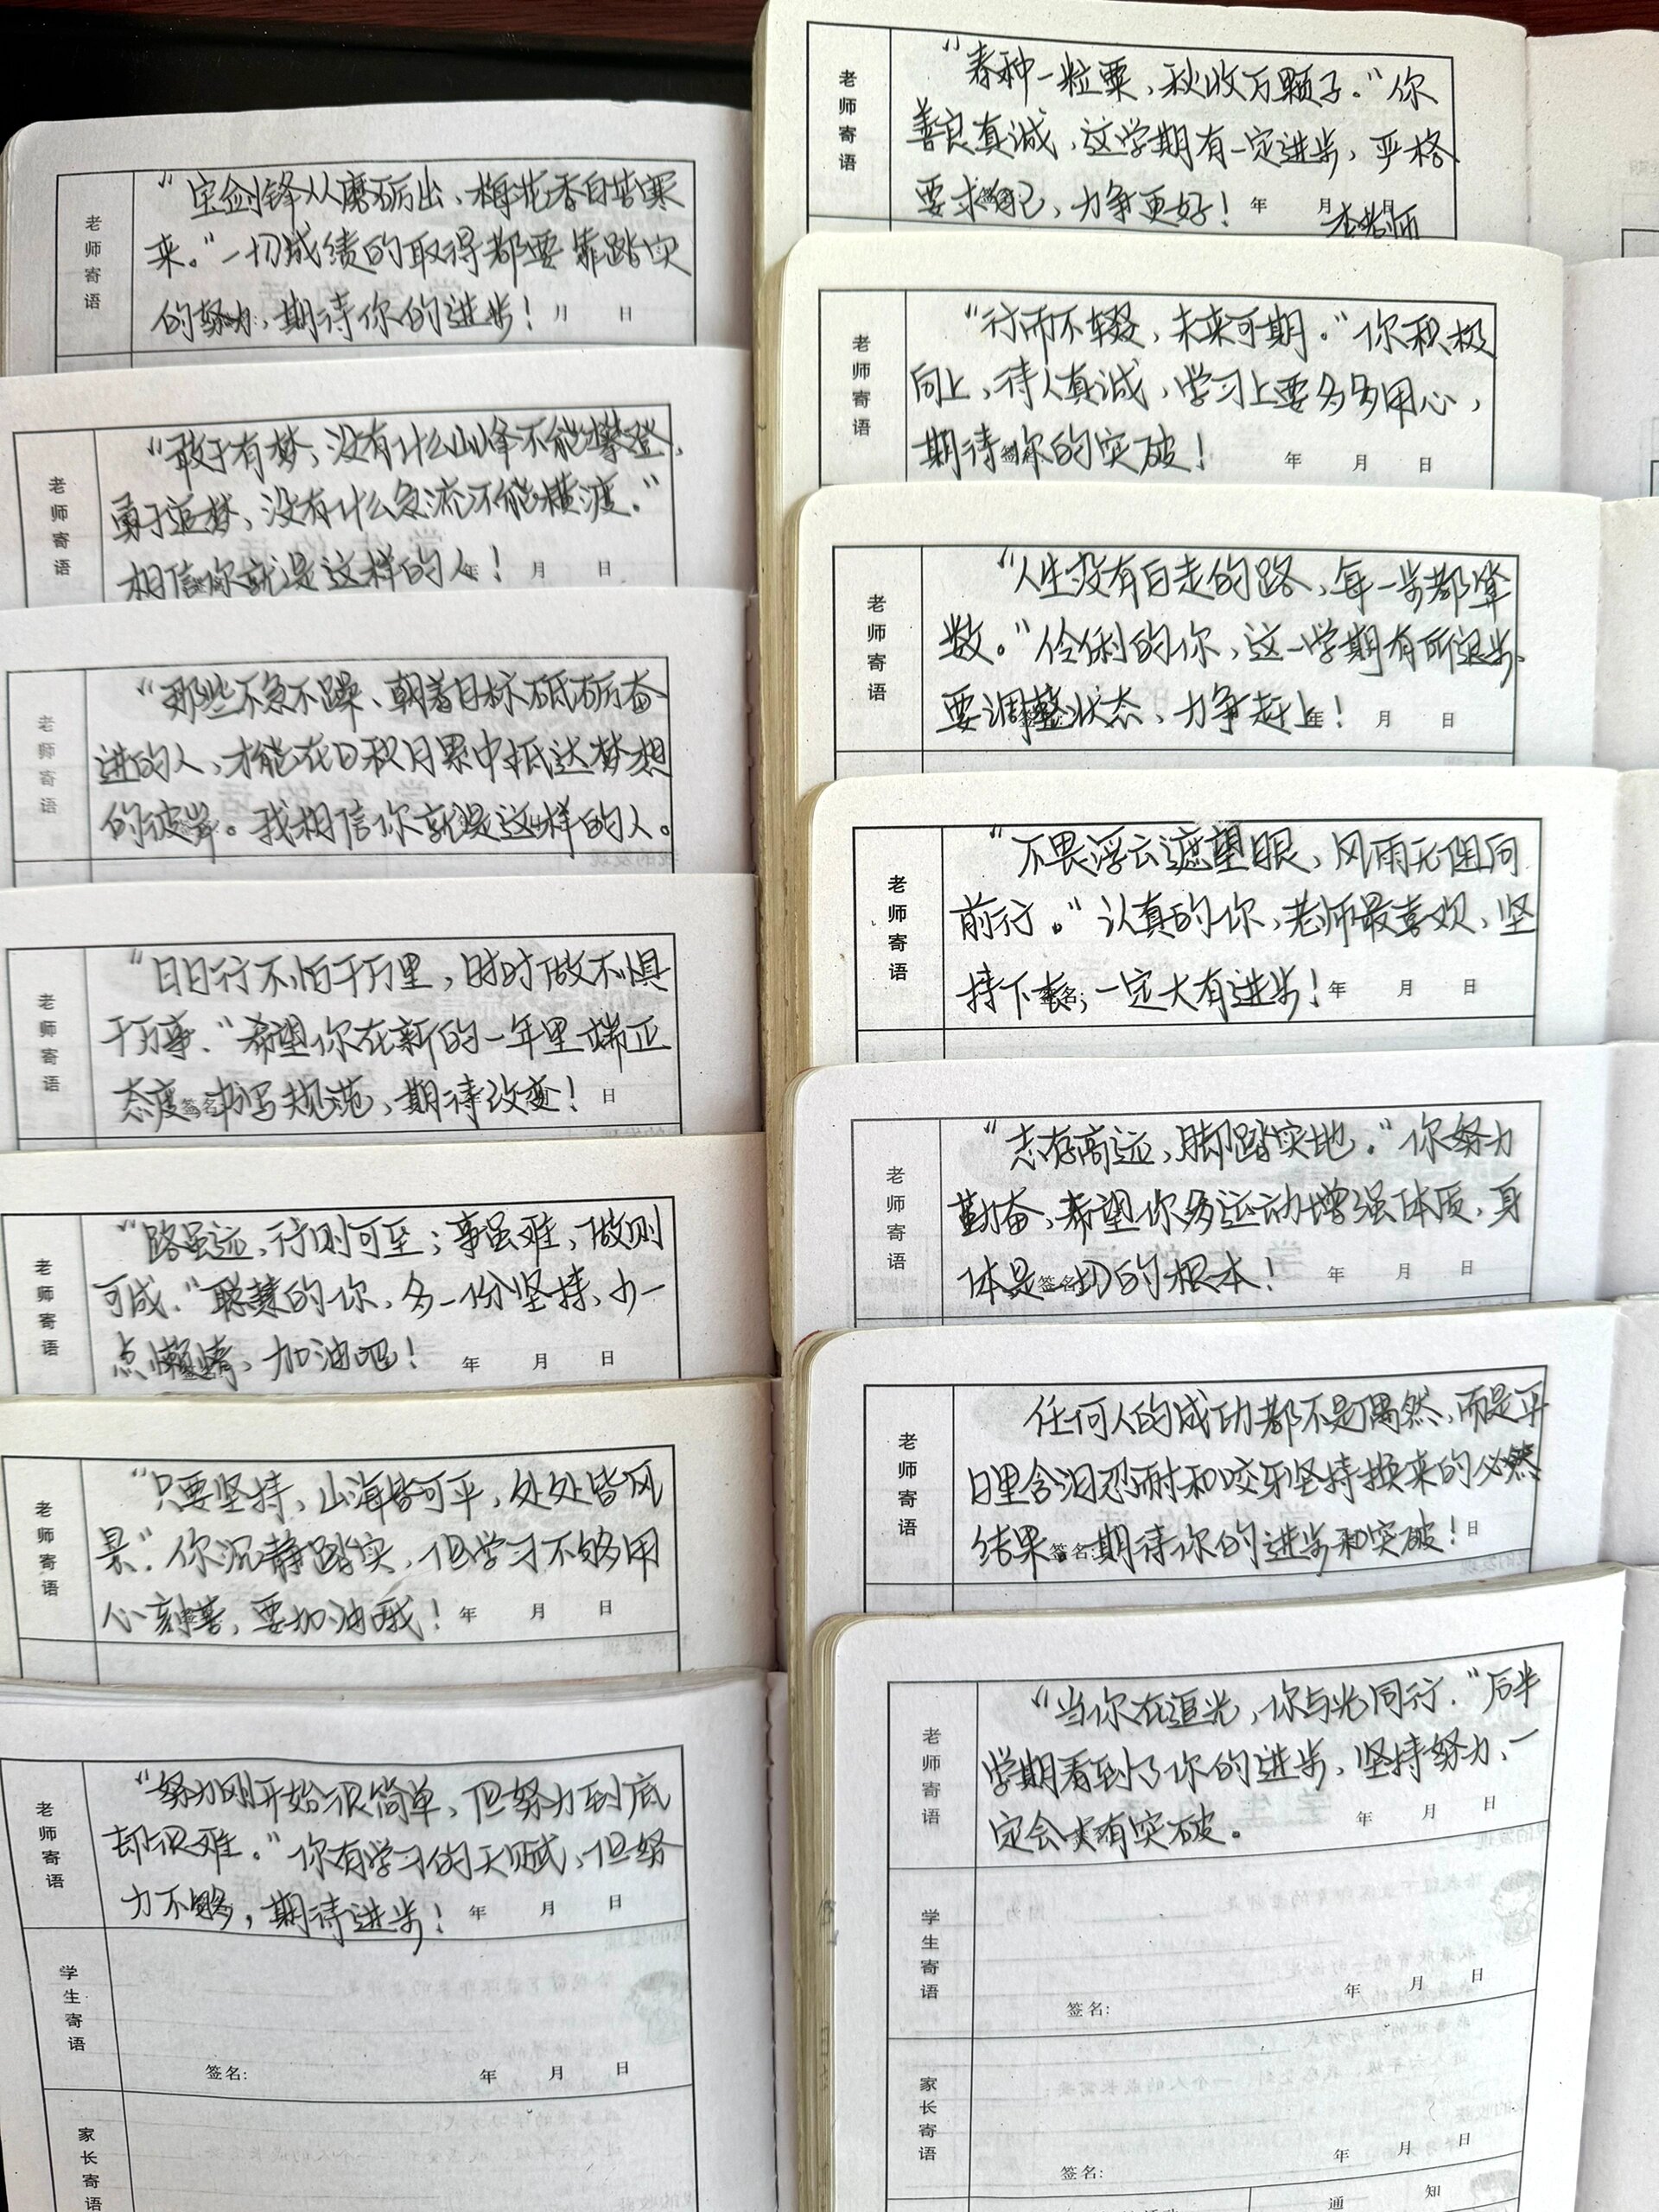 老师寄语
“宝剑锋从磨砺出、梅花香自苦寒
来。”一切成绩的取得都要靠踏实
的努力、期待你的进步！ 月 日
老师寄语
“敢于有梦，没有什么山峰不能攀登，
勇于追梦，没有什么急流不能横渡。”
相信你就是这样的人！ 年 月 日
老师寄语
“那些不急不躁、朝着目标砥砺奋
进的人、才能在日积月累中抵达梦想
的彼岸。我相信你就是这样的人。
老师寄语
“日日行不怕千万里，时时做不惧
千万事.”希望你在新的一年里端正
态度、书写规范、期待改变！ 日
签名
老师寄语
“路虽远、行则可至；事虽难、做则
可成.”聪慧的你、多一份坚持、少一
点懒惰、加油吧！ 年 月 日
老师寄语
“只要坚持、山海皆可平，处处皆风
景”.你沉静踏实，但学习不够用
心刻苦，要加油哦！ 年 月 日
老师寄语
“努力刚开始很简单、但努力到底
却很难。”你有学习的天赋、但努
力不够，期待进步！ 年 月 日
学生寄语
签名: 年 月 日
家长寄语
老师寄语
“春种一粒粟、秋收万颗子.”你
善良真诚、这学期有一定进步、严格
要求自己、力争更好！ 年 月
李老师
老师寄语
“行而不辍，未来可期。”你积极
向上、待人真诚、学习上要多多用心，
期待你的突破！ 年 月 日
老师寄语
“人生没有白走的路、每一步都算
数。”伶俐的你、这一学期有所退步、
要调整状态、力争赶上！ 年 月 日
老师寄语
“不畏浮云遮望眼、风雨无阻向
前行。”认真的你、老师最喜欢、坚
持下去，一定大有进步！ 年 月 日
签名:
老师寄语
“志存高远，脚踏实地.”你努力
勤奋、希望你多运动增强体质，身
体是一切的根本！ 年 月 日
签名
老师寄语
任何人的成功都不是偶然、而是平
日里含泪忍耐和咬牙坚持换来的必然
结果。期待你的进步和突破！ 日
签名:
老师寄语
“当你在追光，你与光同行.”后半
学期看到了你的进步、坚持努力、一
定会大有突破。 年 月 日
学生寄语
签名: 年 月 日
家长寄语
签名: 年 月 日
通 知